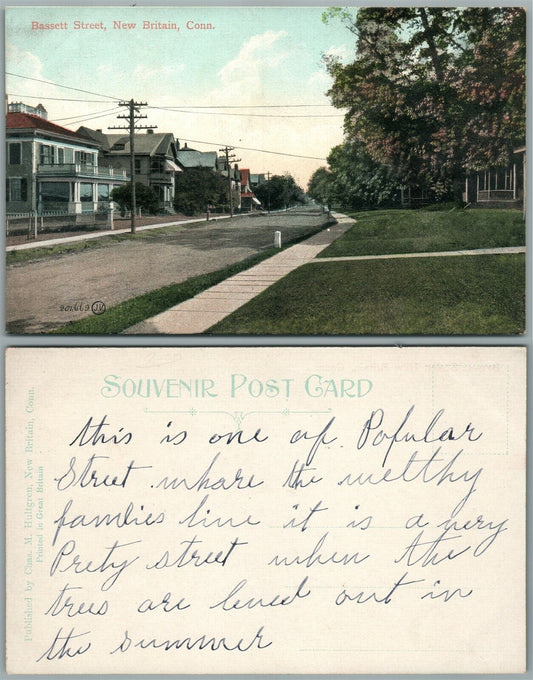 Bassett Street, New Britain, Conn.
201,119 JV
SOUVENIR POST CARD
Published by Chas. M. Hultgren, New Britain, Conn.
Printed in Great Britain
this is one of Popular
Street whare the welthy
families live it is a very
Prety street when the
trees are leved out in
the summer